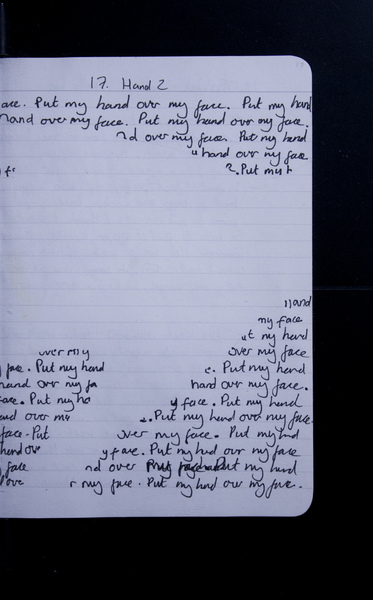 17. Hand 2
ace. Put my hand over my face. Put my hand
hand over my face. Put my hand over my face.
nd over my face. Put my hand
hand over my face
. Put my h
my f
Hand
my face
ut my hand
over my over my face
face. Put my hand e. Put my hand
hand over my fa hand over my face.
face. Put my ha y face. Put my hand
and over my e. Put my hand over my face.
face. Put over my face. Put my hand
hand ov y face. Put my hand over my face
face nd over Put my hand
ove r my face. Put my hand over my face.